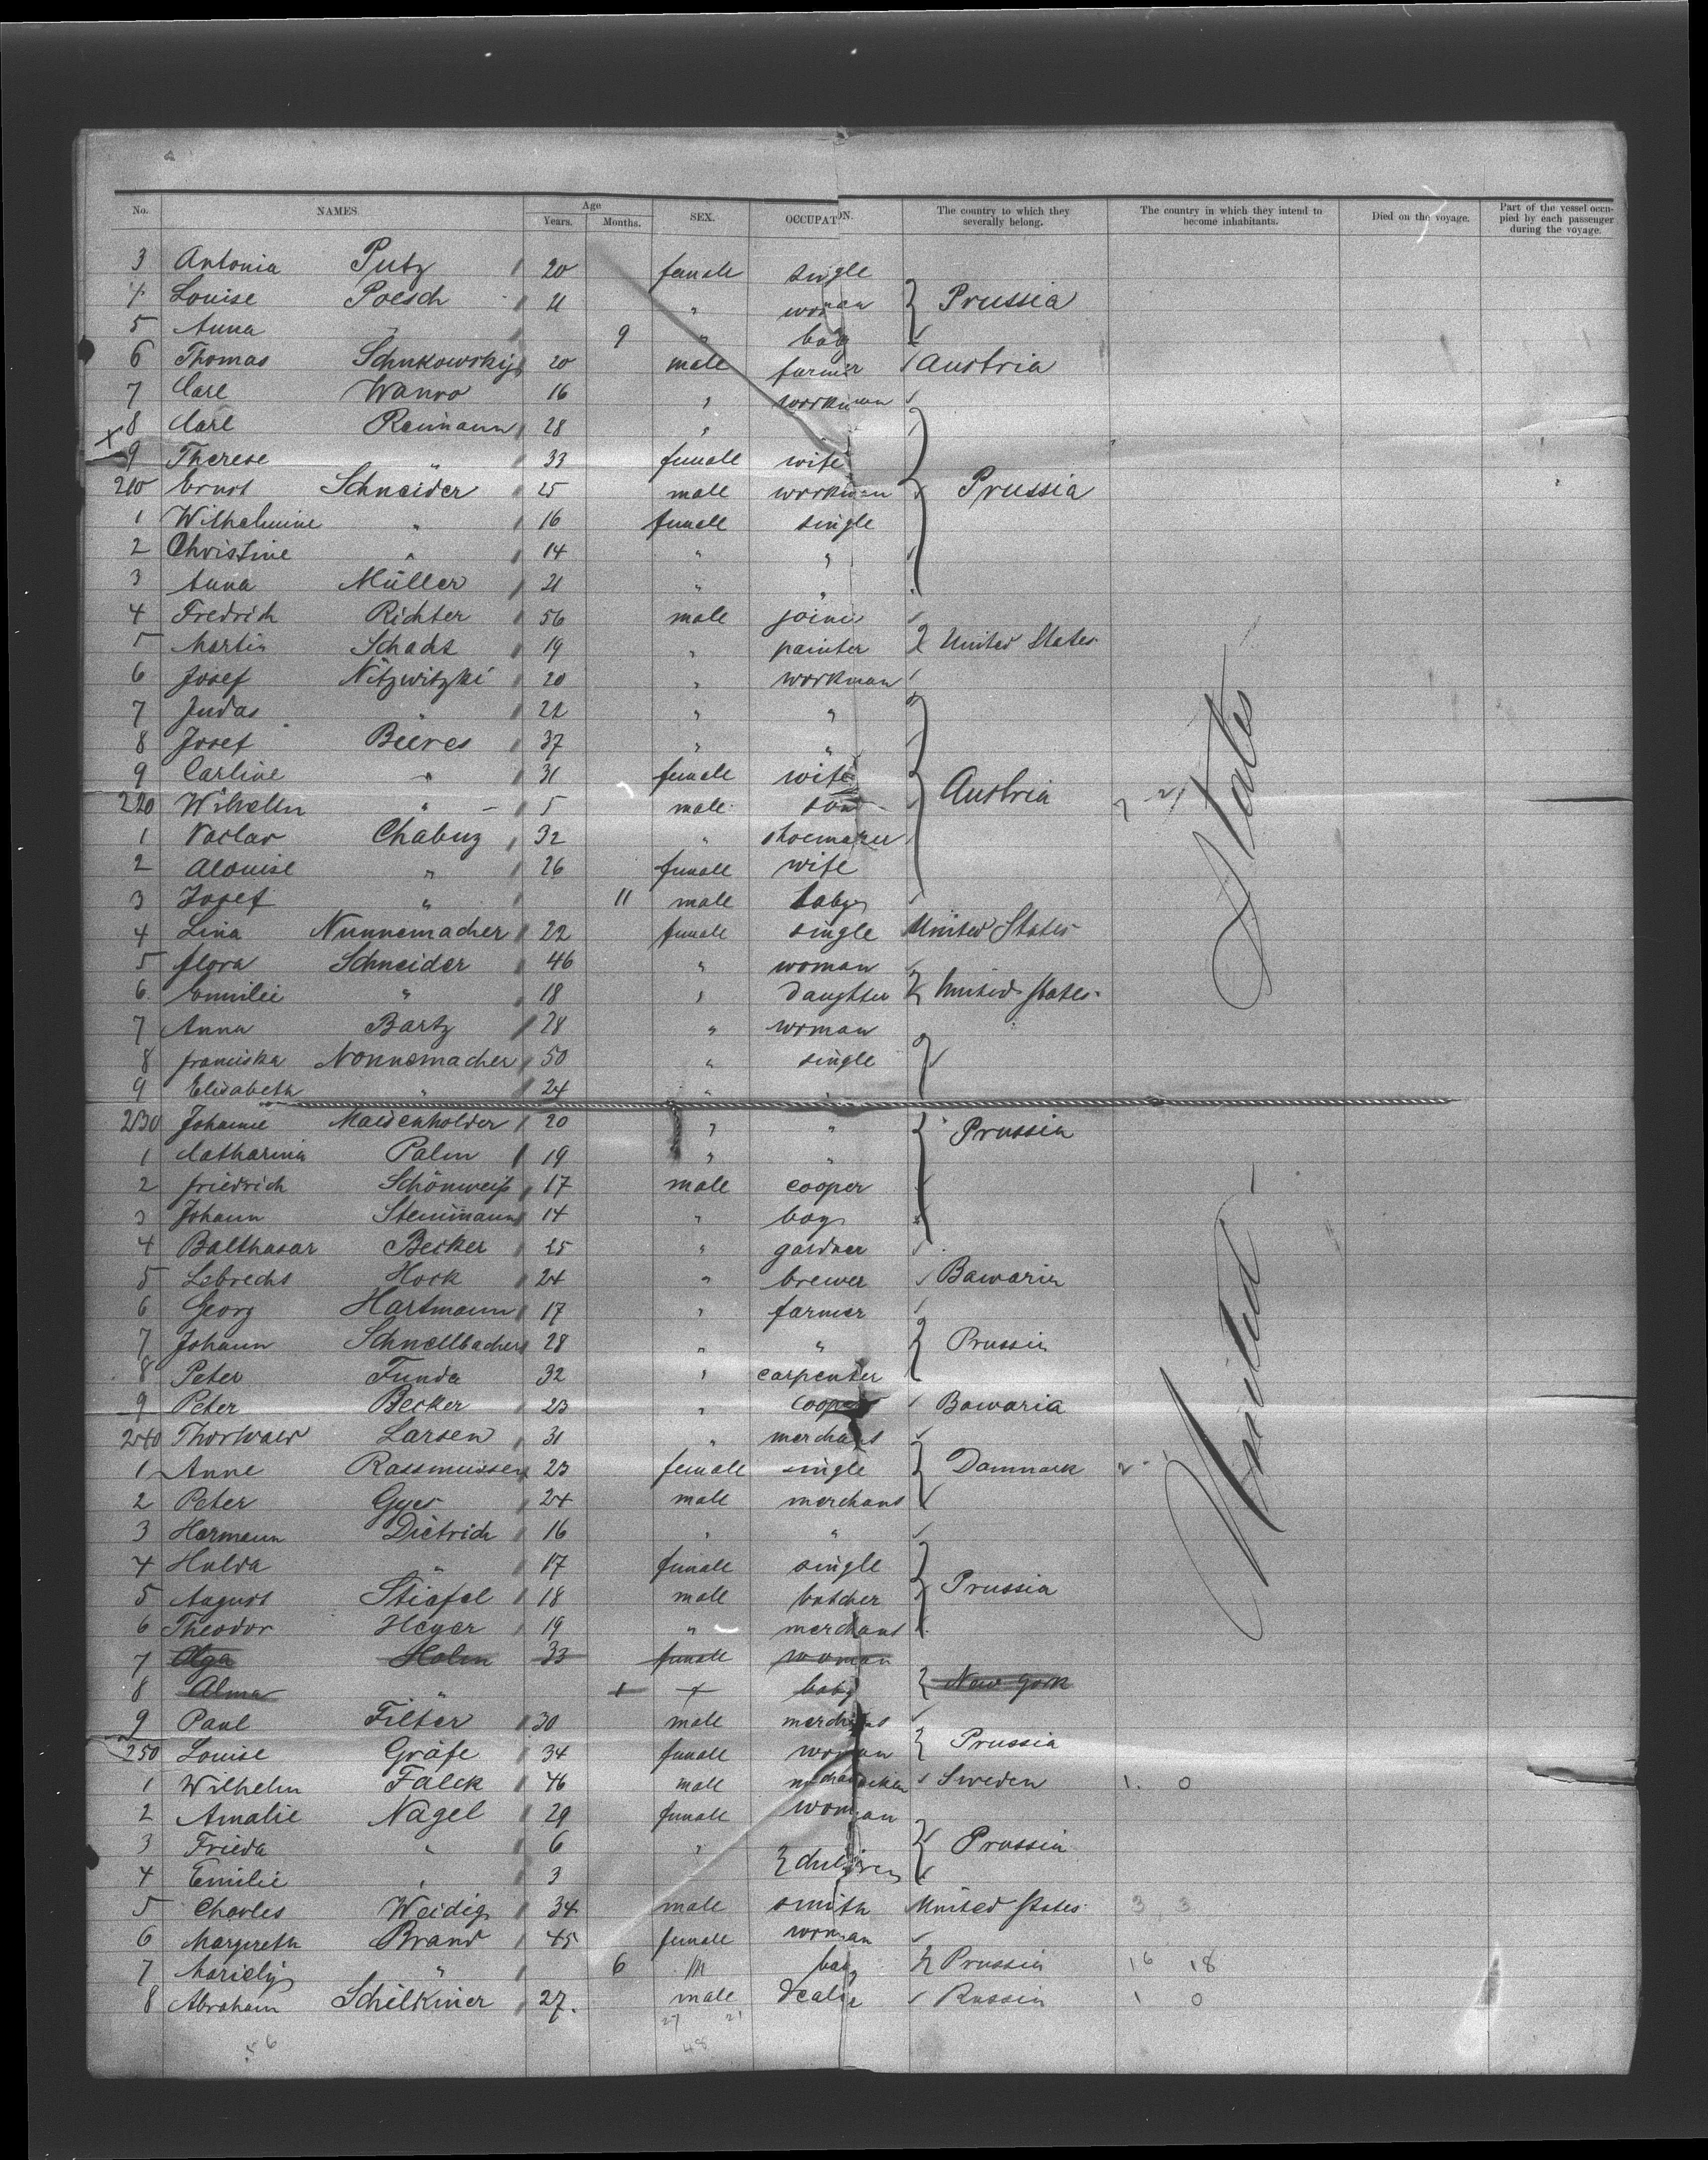 No. NAMES. Age Years. Months. SEX. OCCUPATION. The country to which they severally belong. The country in which they intend to become inhabitants. Died on the voyage. Part of the vessel occupied by each passenger during the voyage.
3 Antonia Putz 20 female single
4 Louise Poesch 21 " woman } Prussia
5 Anna " 9 " baby
6 Thomas 20 male farmer Austria
7 Carl Wanro 16 " workman
8 Carl Reimann 28 "
9 Therese " 33 female wife
210 Ernst Schneider 25 male workman } Prussia
1 Wilhelmine " 16 female single
2 Christine " 14 " "
3 Anna Müller 21 " "
4 Fredrich Richter 56 male joiner
5 Martin Schadt 19 " painter } United States
6 Josef Nitzwitzki 20 " workman
7 Judas " 22 " "
8 Josef Bieres 37 " "
9 Carline " 31 female wife } Austria
220 Wilhelm " 5 male son
1 Vaclav Chabuz 32 " shoemaker
2 Alouise " 26 female wife
3 Josef " 11 male baby
4 Lina Nunnemacher 22 female single United States
5 Flora Schneider 46 " woman
6 Emilie " 18 " daughter } United States
7 Anna Bartz 28 " woman
8 Franciska Nonnemacher 50 " single
9 Elisabeth " 24 " "
230 Johanne Maidenholder 20 " " } Prussia
1 Catharina Palm 19 " "
2 Friedrich Schönweiß 17 male cooper
3 Johann Steinmann 14 " boy
4 Balthasar Becker 25 " gardner
5 Lebrecht Hock 24 " brewer Bawaria
6 Georg Hartmann 17 " farmer
7 Johann Schnellbacher 28 " " } Prussia
8 Peter Funda 32 " carpenter
9 Peter Becker 23 " cooper Bawaria
240 Thorwald Larsen 31 " merchant
1 Anne Rassmussen 23 female single } Danmark 2
2 Peter Gyes 24 male merchant
3 Hermann Dietrich 16 " "
4 Hulda " 17 female single
5 August Stiefel 18 male butcher } Prussia
6 Theodor Heyer 19 " merchant
7 Olga Holm 33 female woman
8 Alma " 1 + baby } New York
9 Paul Filter 30 male merchant
250 Louise Gräfe 34 female woman } Prussia
1 Wilhelm Falck 46 male Sweden 1. 0
2 Amalie Nagel 29 female woman
3 Frieda " 6 " } children } Prussia
4 Emilie " 3
5 Charles Weidig 34 male smith United States 3 3
6 Margreth Brand 45 female woman
7 " 6 m baby } Prussia 16 18
8 Abraham Schilkiner 27. male dealer Russia 1 0
27 21
48
56
United States